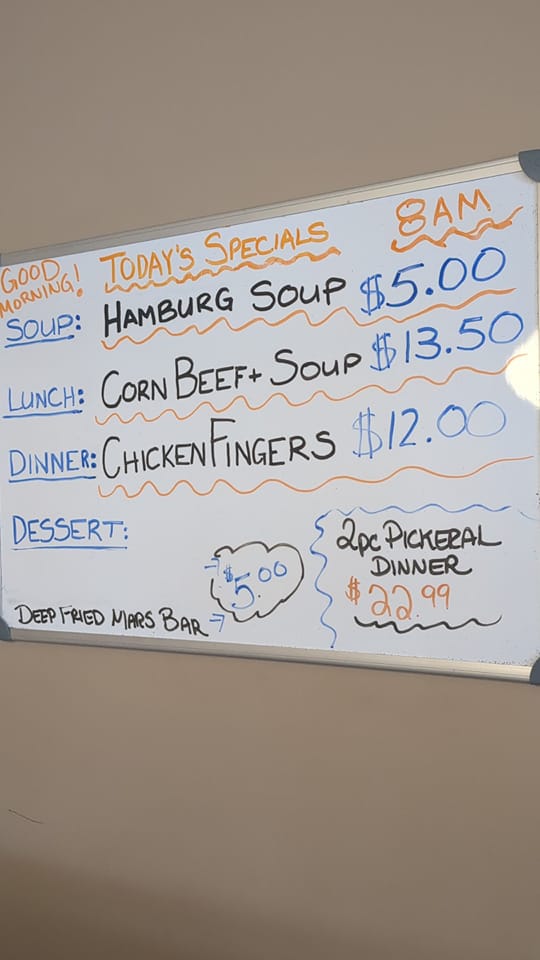 GOOD MORNING! TODAY'S SPECIALS 8AM
SOUP: HAMBURG SOUP $5.00
LUNCH: CORN BEEF + SOUP $13.50
DINNER: CHICKEN FINGERS $12.00
DESSERT:
$5.00
DEEP FRIED MARS BAR →
2pc PICKERAL
DINNER
$22.99